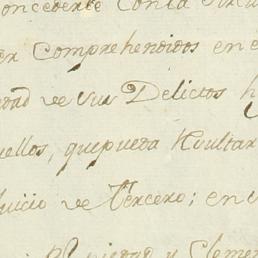 oncederle con la circu
er Comprehendidos en e
edad de sus Delictos h
uellos, que pueda Resultar
Juicio de tercero; en c
Piedad y Clemen